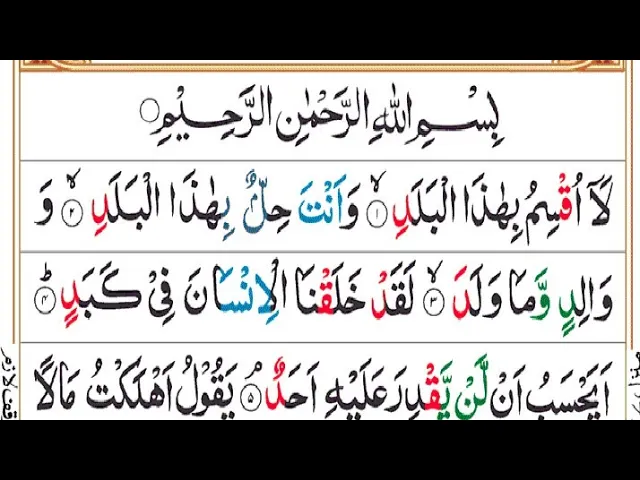 بِسْمِ اللّٰهِ الرَّحْمٰنِ الرَّحِیْمِ
لَاۤ اُقْسِمُ بِهٰذَا الْبَلَدِۙ۝۱ وَاَنْتَ حِلٌّۢ بِهٰذَا الْبَلَدِۙ۝۲ وَ
وَالِدٍ وَّمَا وَلَدَۙ۝۳ لَقَدْ خَلَقْنَا الْاِنْسَانَ فِیْ كَبَدٍؕ۝۴
اَیَحْسَبُ اَنْ لَّنْ یَّقْدِرَ عَلَیْهِ اَحَدٌۘ۝۵ یَقُوْلُ اَهْلَكْتُ مَالًا
وقف لازم